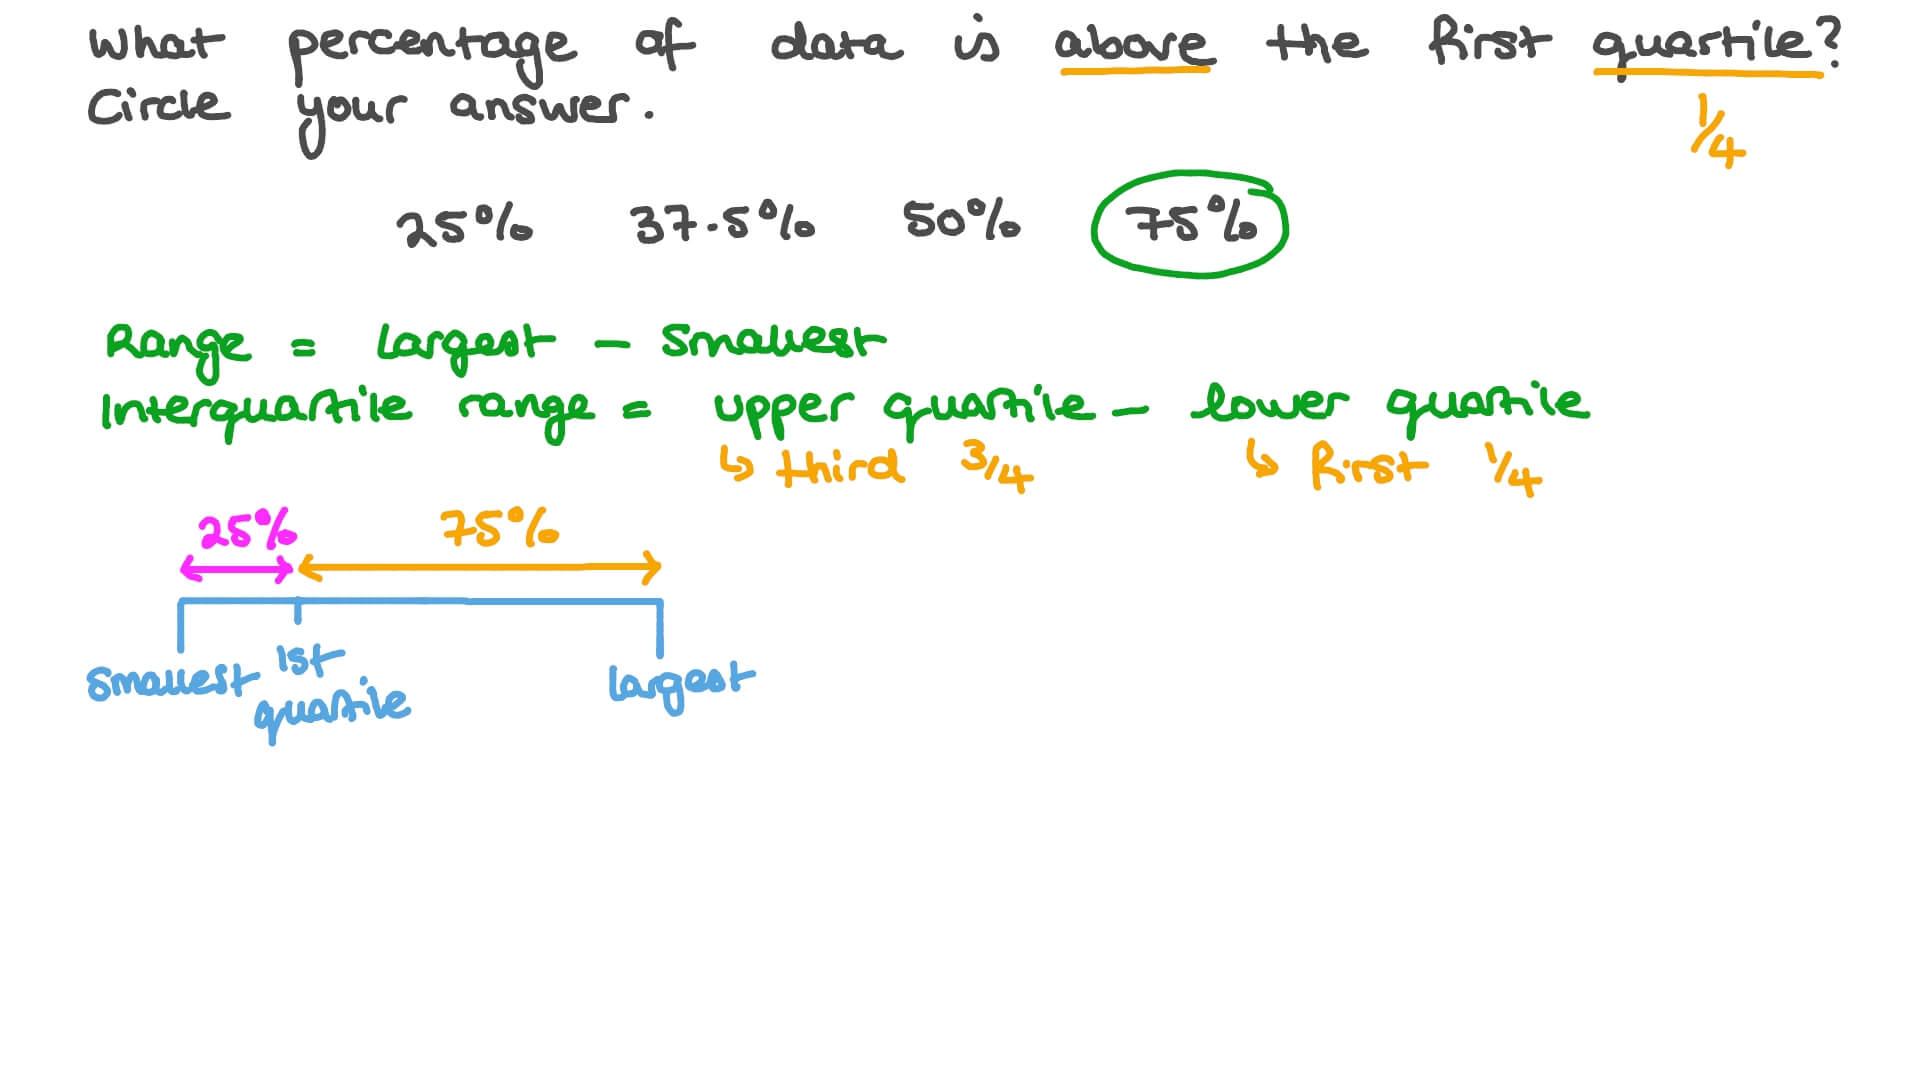 What percentage of data is above the first quartile?
Circle your answer.
1/4
25% 37.5% 50% 75%
Range = largest - smallest
Interquartile range = upper quartile - lower quartile
↳ third 3/4 ↳ first 1/4
25% 75%
smallest 1st quartile largest